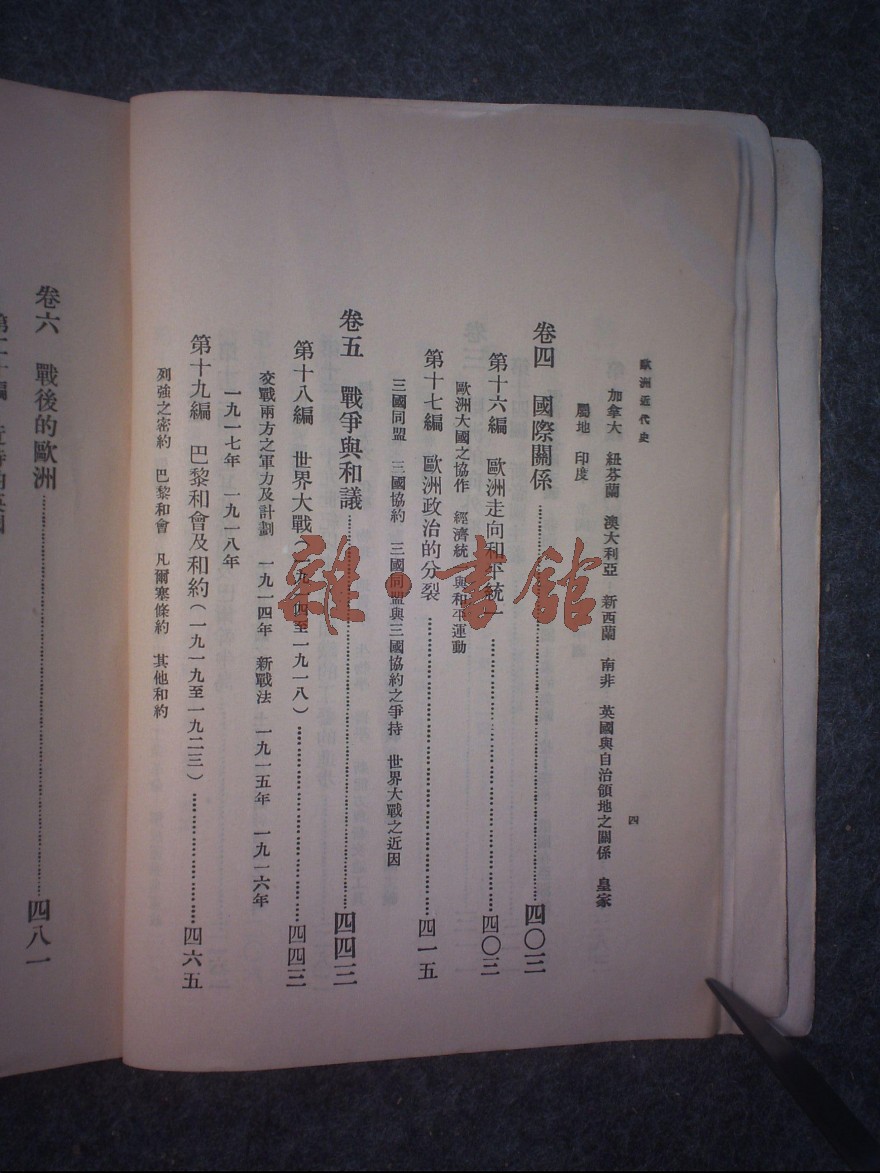 歐洲近代史
四
加拿大 紐芬蘭 澳大利亞 新西蘭 南非 英國與自治領地之關係 皇家
屬地 印度
卷四 國際關係……四〇三
第十六編 歐洲走向和平統一……四〇三
歐洲大國之協作 經濟統一與和平運動
第十七編 歐洲政治的分裂……四一五
三國同盟 三國協約 三國同盟與三國協約之爭持 世界大戰之近因
卷五 戰爭與和議……四四三
第十八編 世界大戰(一九一四至一九一八)……四四三
交戰兩方之軍力及計劃 一九一四年 新戰法 一九一五年 一九一六年
一九一七年 一九一八年
第十九編 巴黎和會及和約(一九一九至一九二三)……四六五
列強之密約 巴黎和會 凡爾塞條約 其他和約
卷六 戰後的歐洲……四八一
雜·書館